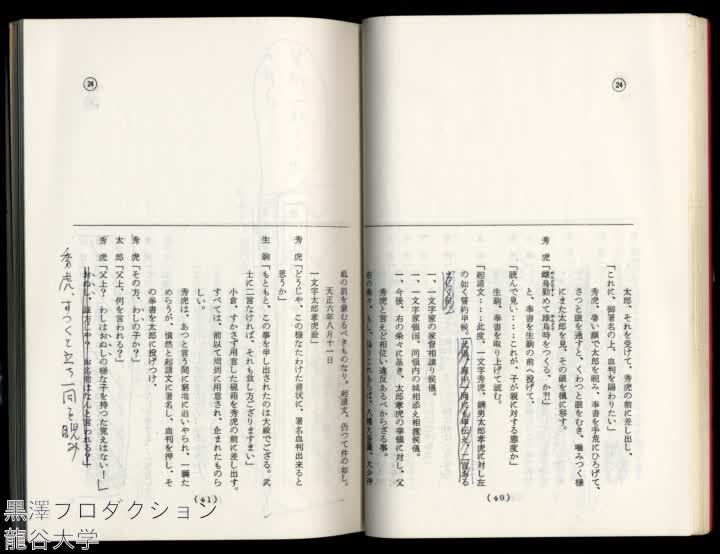 ㉔
太郎、それを受けて、秀虎の前に差し出し、
「これに、御署名の上、血判を賜わりたい」
秀虎、凄い顔で太郎を睨み、奉書を手荒にひろげて、
さつと眼を通すと、くわつと眼をむき、噛みつく様
にまた太郎を見、その眼を楓に移す。
秀　虎「雌鳥勧めて雄鳥時をつくる、か?!」
と、奉書を生駒の前へ投げて、
「読んで見い……これが、子が親に対する態度か」
生駒、奉書を取り上げて読む。
「起請文……此度、一文字秀虎、嫡男太郎孝虎に対し左
の如く誓約申候。
一、一文字家の家督相譲り候儀。
一、一文字家領国、同領内の城相添え相渡候儀。
一、今後、右の条々に基き、太郎孝虎の宰領に対し、父
秀虎と言えど相従い違反あるべからざる事。
右の条々、もし、偽りこれあらば、八幡大菩薩、大小神
(40)
㉔
祇の罰を蒙むるべきものなり。起請文、仍つて件の如し。
天正六年八月十一日
一文字太郎孝虎殿」
秀　虎「どうじや、この様なたわけた書状に、署名血判出来ると
思うか」
生　駒「もともと、この事を申し出されたのは大殿でござる。武
士に二言なければ、それも致し方ござりますまい」
小倉、すかさず用意した硯箱を秀虎の前に差し出す。
すべては、前以て周到に用意され、企まれたものら
しい。
秀虎は、あつと言う間に窮地に追いやられ、一瞬た
めらうが、憤然と起請文に署名し、血判を押し、そ
の奉書を太郎に投げつけ、
秀　虎「その方、わしの子か?」
太　郎「父上、何を言われる?」
秀　虎「父上?　わしはおぬしの様な子を持つた覚えはない!」
おぬし、誰方じや?　お名前はなんと言われる?」
秀虎、すつくと立ち一同を睨み
(41)
黒澤プロダクション
龍谷大学